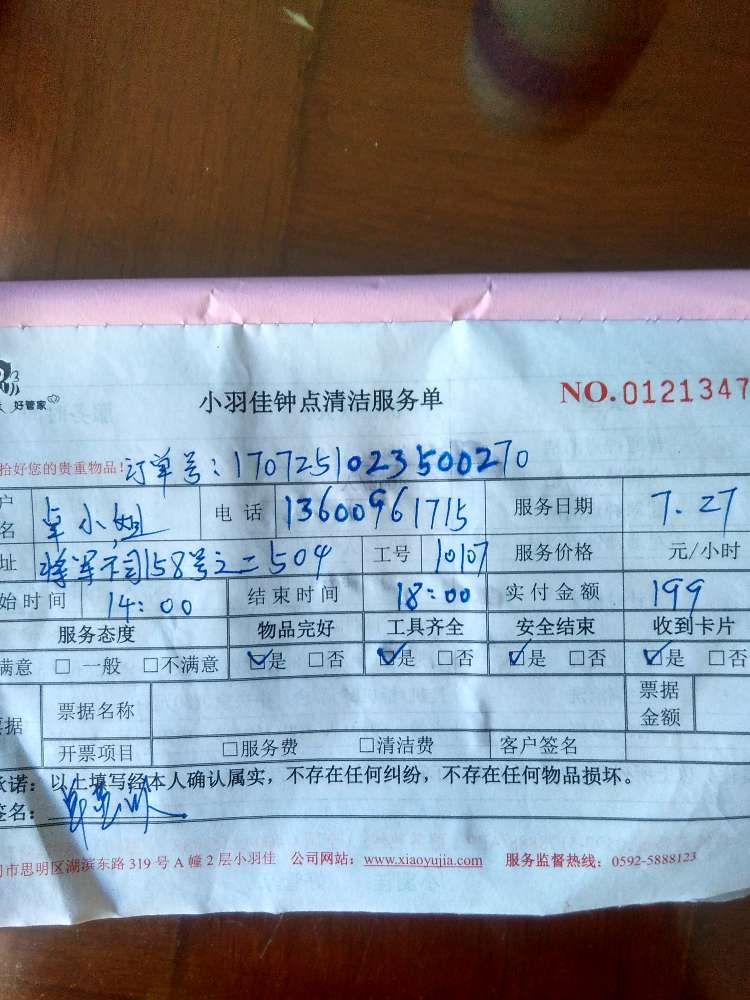 好管家
小羽佳钟点清洁服务单 NO.0121347
拾好您的贵重物品! 订单号:1707251023500270
户名 卓小姐 电话 13600961715 服务日期 7.27
址 将军祠158号之二504 工号 10107 服务价格 元/小时
始时间 14:00 结束时间 18:00 实付金额 199
服务态度 物品完好 工具齐全 安全结束 收到卡片
满意 □一般 □不满意 ☑是 □否 ☑是 □否 ☑是 □否 ☑是 □否
票据 票据名称 票据金额
开票项目 □服务费 □清洁费 客户签名
承诺:以上填写经本人确认属实,不存在任何纠纷,不存在任何物品损坏。
签名:
门市思明区湖滨东路 319 号 A 幢 2 层小羽佳 公司网站:www.xiaoyujia.com 服务监督热线:0592-5888123